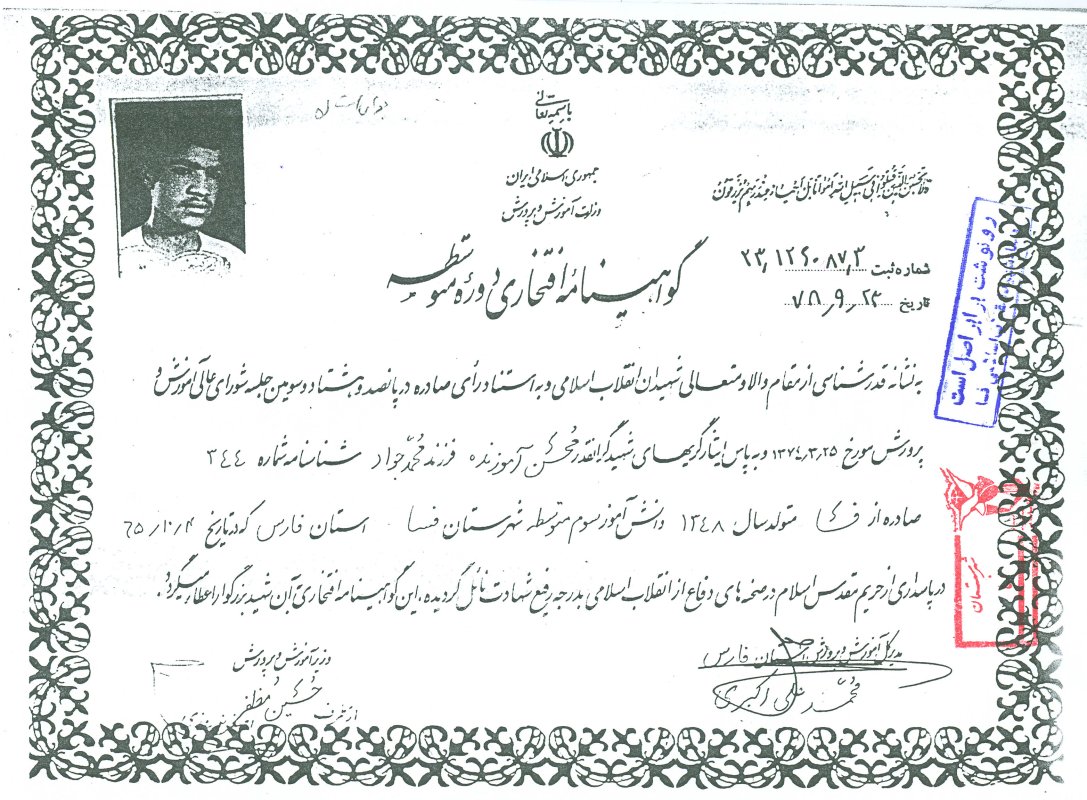 باسمه تعالی
جمهوری اسلامی ایران
وزارت آموزش و پرورش
شماره ثبت ۲۳٫۱۲۶۰۸۷٫۳
تاریخ ۷۸٫۹٫۲۳
رونوشت برابر اصل است
فسا
گواهینامهٔ افتخاری دورهٔ متوسطه
به نشانه قدرشناسی از مقام والا و متعالی شهیدان انقلاب اسلامی و به استناد رأی صادره در پانصد و هشتاد و سومین جلسه شورای عالی آموزش و
پرورش مورخ ۱۳۷۴٫۳٫۲۵ و به پاس ایثارگریهای شهید گرانقدر محسن آموزنده فرزند محمدجواد شناسنامه شماره ۳۴۴
صادره از فسا متولد سال ۱۳۴۸ دانش آموز سوم متوسطه شهرستان فسا استان فارس که در تاریخ ۶۵/۱۰/۴
در پاسداری از حریم مقدس اسلام در صحنه های دفاع از انقلاب اسلامی بدرجه رفیع شهادت نائل گردیده، این گواهینامه افتخاری به آن شهید بزرگوار اعطاء میگردد.
شهرستان
مدیر کل آموزش و پرورش استان فارس
محمدعلی اکبری
وزیر آموزش و پرورش
حسین مظفر
از طرف